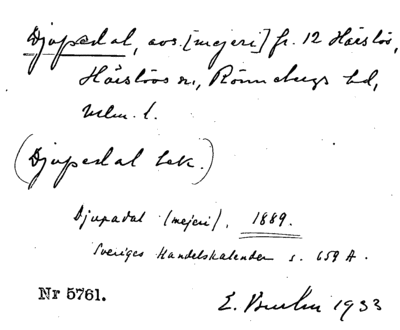 Djupedal, avs. [mejeri] fr. 12 Häislös,
Häislövs sn, Rönnebergs hd,
Malm. l.
(Djupedal bek.)
Djupadal (mejeri), 1889.
Sveriges Handelskalender s. 659 A.
Nr 5761.
E. 1933